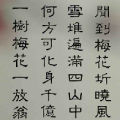 聞到梅花坼曉風
雪堆遍滿四山中
何方可化身千億
一樹梅花一放翁